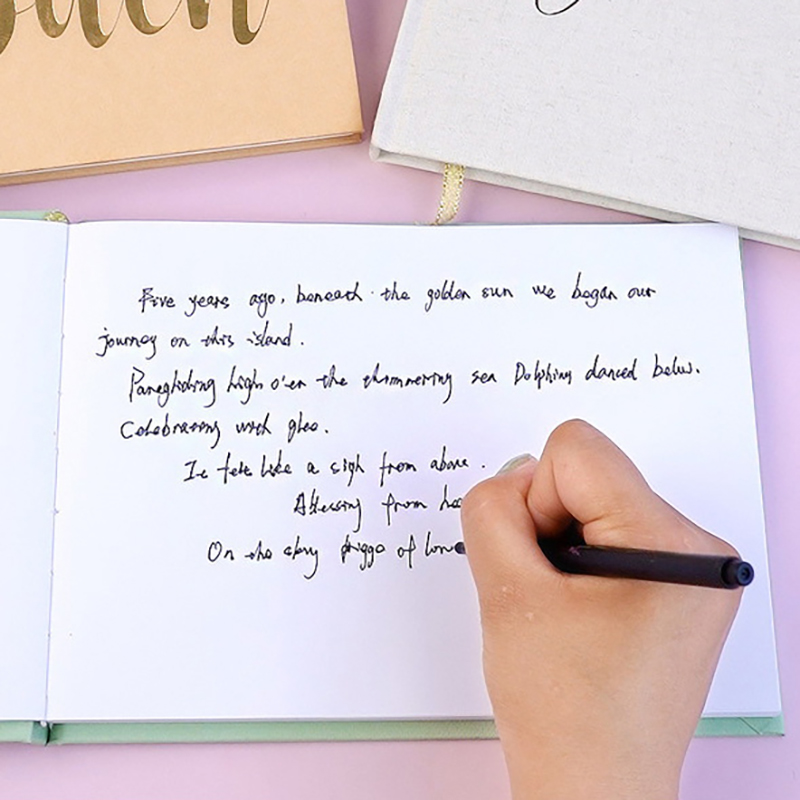 Five years ago, beneath the golden sun we began our
journey on this island.
Paragliding high o'er the shimmering sea Dolphins danced below.
Celebrating with glee.
It felt like a sigh from above.
A blessing from
On the
of love